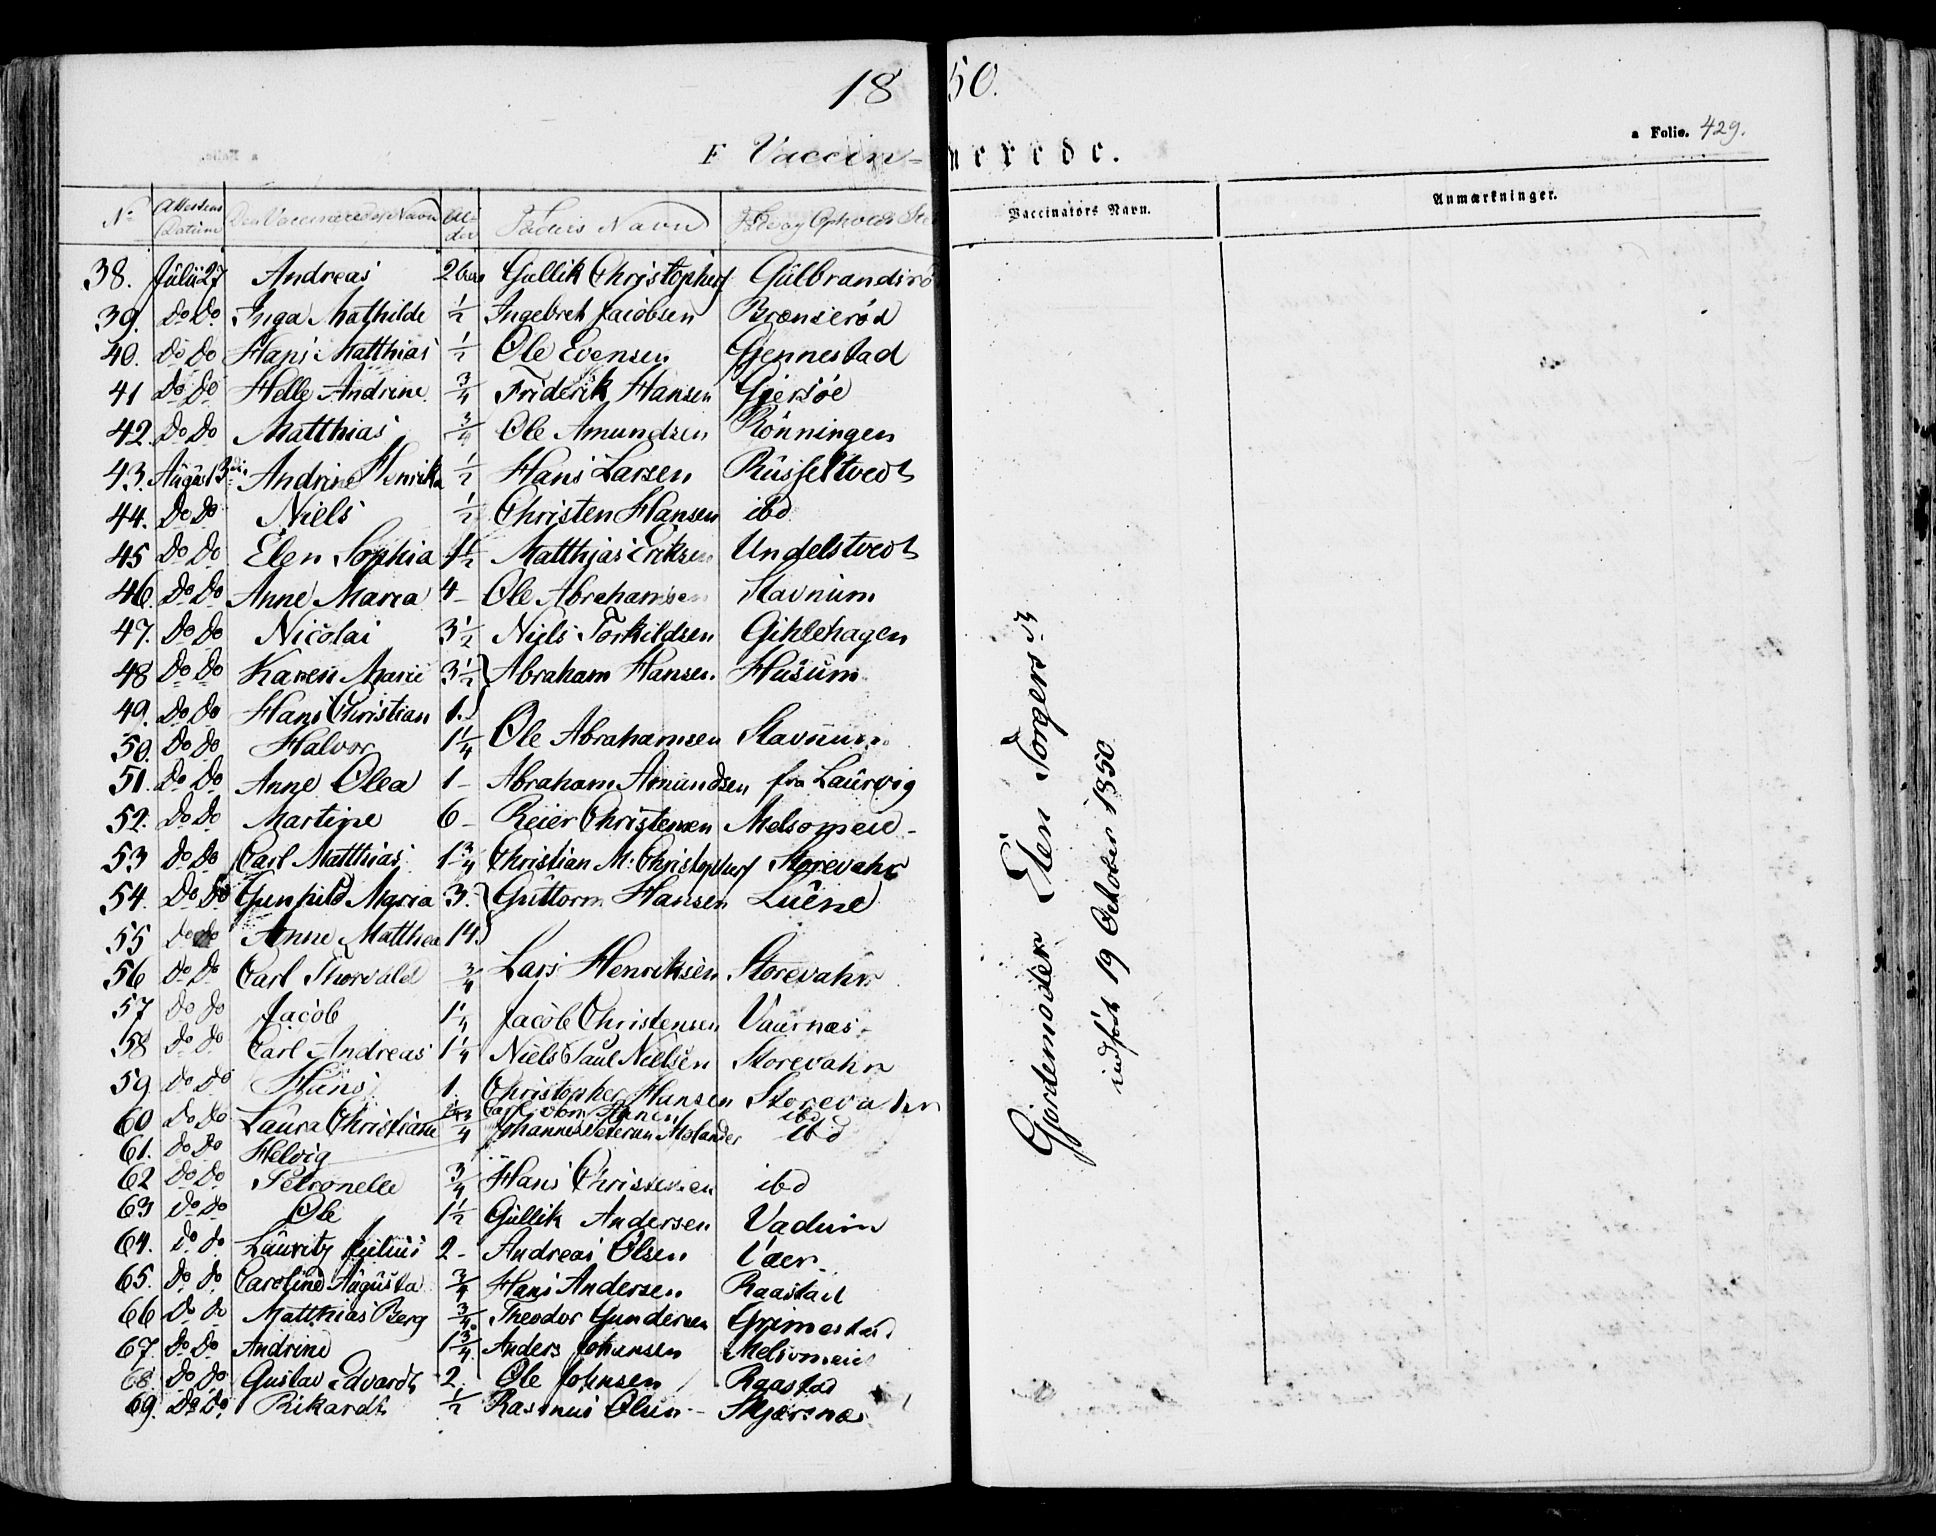 1850.
a Folio. 429.
F Vaccinerede.
No Attestens Datum Den Vaccineredes Navn Alder Faders Navn Føde og Opholds Sted Vaccinators Navn. Anmærkninger.
38. Julii 27 Andreas 2 Gullik Christophers Gulbrandsrø
39. Do Do Inga Mathilde 1/2 Ingebret Jacobsen Brænserød
40. Do Do Hans Matthias 1/2 Ole Evensen Gjennestad
41 Do Do Helle Andrine 3/4 Friderik Hansen Gjersøe
42. Do Do Matthias 3/4 Ole Amundsen Rönningen
43. August 3 Andrine Henrika 1/2 Hans Larsen Russeltvedt
44. Do Do Niels 1/2 Christen Hansen ibd
45 Do Do Elen Sophia 1 1/2 Matthias Eriksen Undelstvedt
46. Do Do Anne Maria 4 - Ole Abrahamsen Stavnum
47. Do Do Nicolai 3 1/2 Niels Torkildsen Gihlehagen
48 Do Do Karen Marie 3 1/2 } Abraham Hansen Husum
49. Do Do Hans Christian 1. }
50. Do Do Halvor 1 1/4 Ole Abrahamsen Stavnum
51. Do Do Anne Olea 1 - Abraham Amundsen fra Laurvig
52. Do Do Martine 6 - Reier Christensen Melsomeid -
53 Do Do Carl Matthias 1 3/4 Christian M. Christophers Storevahr
54. Do Do Gunhild Maria 3. } Guttorm Hansen Luene
55 Do Do Anne Matthea 14. }
56 Do Do Carl Thorvald 3/4 Lars Henriksen Storevahr
57 Do Do Jacob 1 1/4 Jacob Christensen Vaarnæs
58 Do Do Carl Andreas 1 1/4 Niels Paul Nielsen Storevahr
59 Do Do Hans 1 Christopher Hansen Storevahr
60 Do Do Laura Christiane Carl von Hanen ibd
61. Do Do Helvig 3/4 Johannes Molander ibd
62 Do Do Petronelle 3/4 Hans Christensen ibd
63 Do Do Ole 1 1/2 Gullik Andersen Vadum
64. Do Do Lauritz Julius 2 - Andreas Olsen Væer
65. Do Do Caroline Augusta 3/4 Hans Andersen Raastad
66 Do Do Matthias Berg 3/4 Theodor Gundersen Grimestad
67. Do Do Andrine 1 3/4 Anders Johansen Melsomeid
68 Do Do Gustav Edvardt 2. Ole Johnsen Raastad
69. Do Do Rikardt 1/2 Rasmus Olsen - Skjærsnæs
Gjordemoder Elen Torgersdr
indført 19 October 1850